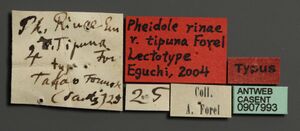 Ph. Rinae Em
r. Tipuna
For
type
Takao Formose
(Sauter) 28
Pheidole rinae
r. tipuna Forel
Lectotype
Eguchi, 2004
25
Coll.
A. Forel
Typus
ANTWEB
CASENT
0907993